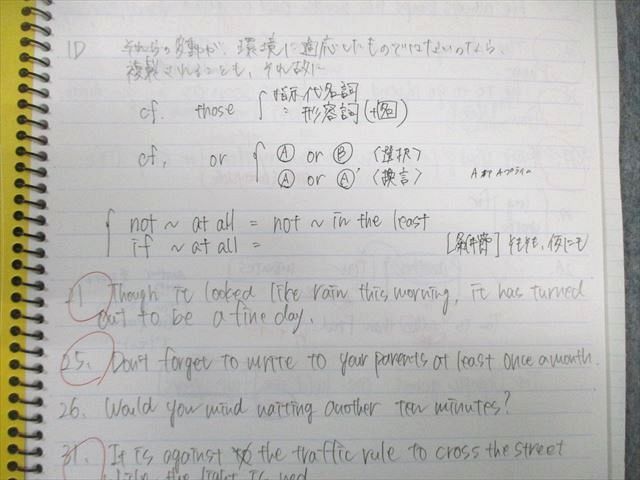 1D それらの多動が、環境に適応したものではないのなら、
複製されることも、それ故に
cf. those { 指示代名詞
: 形容詞 (+名)
cf, or { Ⓐ or Ⓑ 〈選択〉
Ⓐ or Ⓐ' 〈換言〉 A or Aプライム
{ not ~ at all = not ~ in the least
if ~ at all = [条件節] そもそも、仮にも
21 Though it looked like rain this morning, it has turned
out to be a fine day.
25. Don't forget to write to your parents at least once a month.
26. Would you mind waiting another ten minutes?
31. It is against the traffic rule to cross the street
the light is red